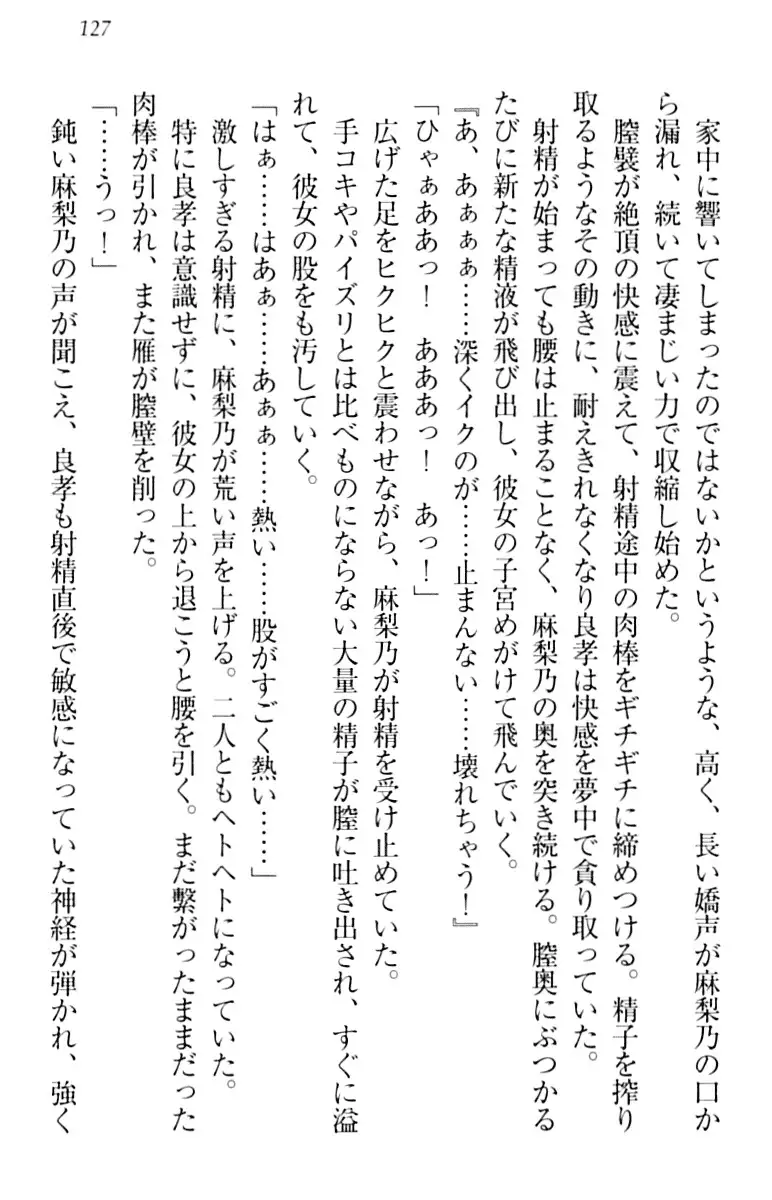 127
　家中に響いてしまったのではないかというような、高く、長い嬌声が麻梨乃の口か
ら漏れ、続いて凄まじい力で収縮し始めた。
　膣襞が絶頂の快感に震えて、射精途中の肉棒をギチギチに締めつける。精子を搾り
取るようなその動きに、耐えきれなくなり良孝は快感を夢中で貪り取っていた。
　射精が始まっても腰は止まることなく、麻梨乃の奥を突き続ける。膣奥にぶつかる
たびに新たな精液が飛び出し、彼女の子宮めがけて飛んでいく。
『あ、あぁぁぁ……深くイクのが……止まんない……壊れちゃう！』
「ひゃぁああっ！　あああっ！　あっ！」
　広げた足をヒクヒクと震わせながら、麻梨乃が射精を受け止めていた。
　手コキやパイズリとは比べものにならない大量の精子が膣に吐き出され、すぐに溢
れて、彼女の股をも汚していく。
「はぁ……はあぁ……あぁぁ……熱い……股がすごく熱い……」
　激しすぎる射精に、麻梨乃が荒い声を上げる。二人ともヘトヘトになっていた。
　特に良孝は意識せずに、彼女の上から退こうと腰を引く。まだ繋がったままだった
肉棒が引かれ、また雁が膣壁を削った。
「……うっ！」
　鈍い麻梨乃の声が聞こえ、良孝も射精直後で敏感になっていた神経が弾かれ、強く